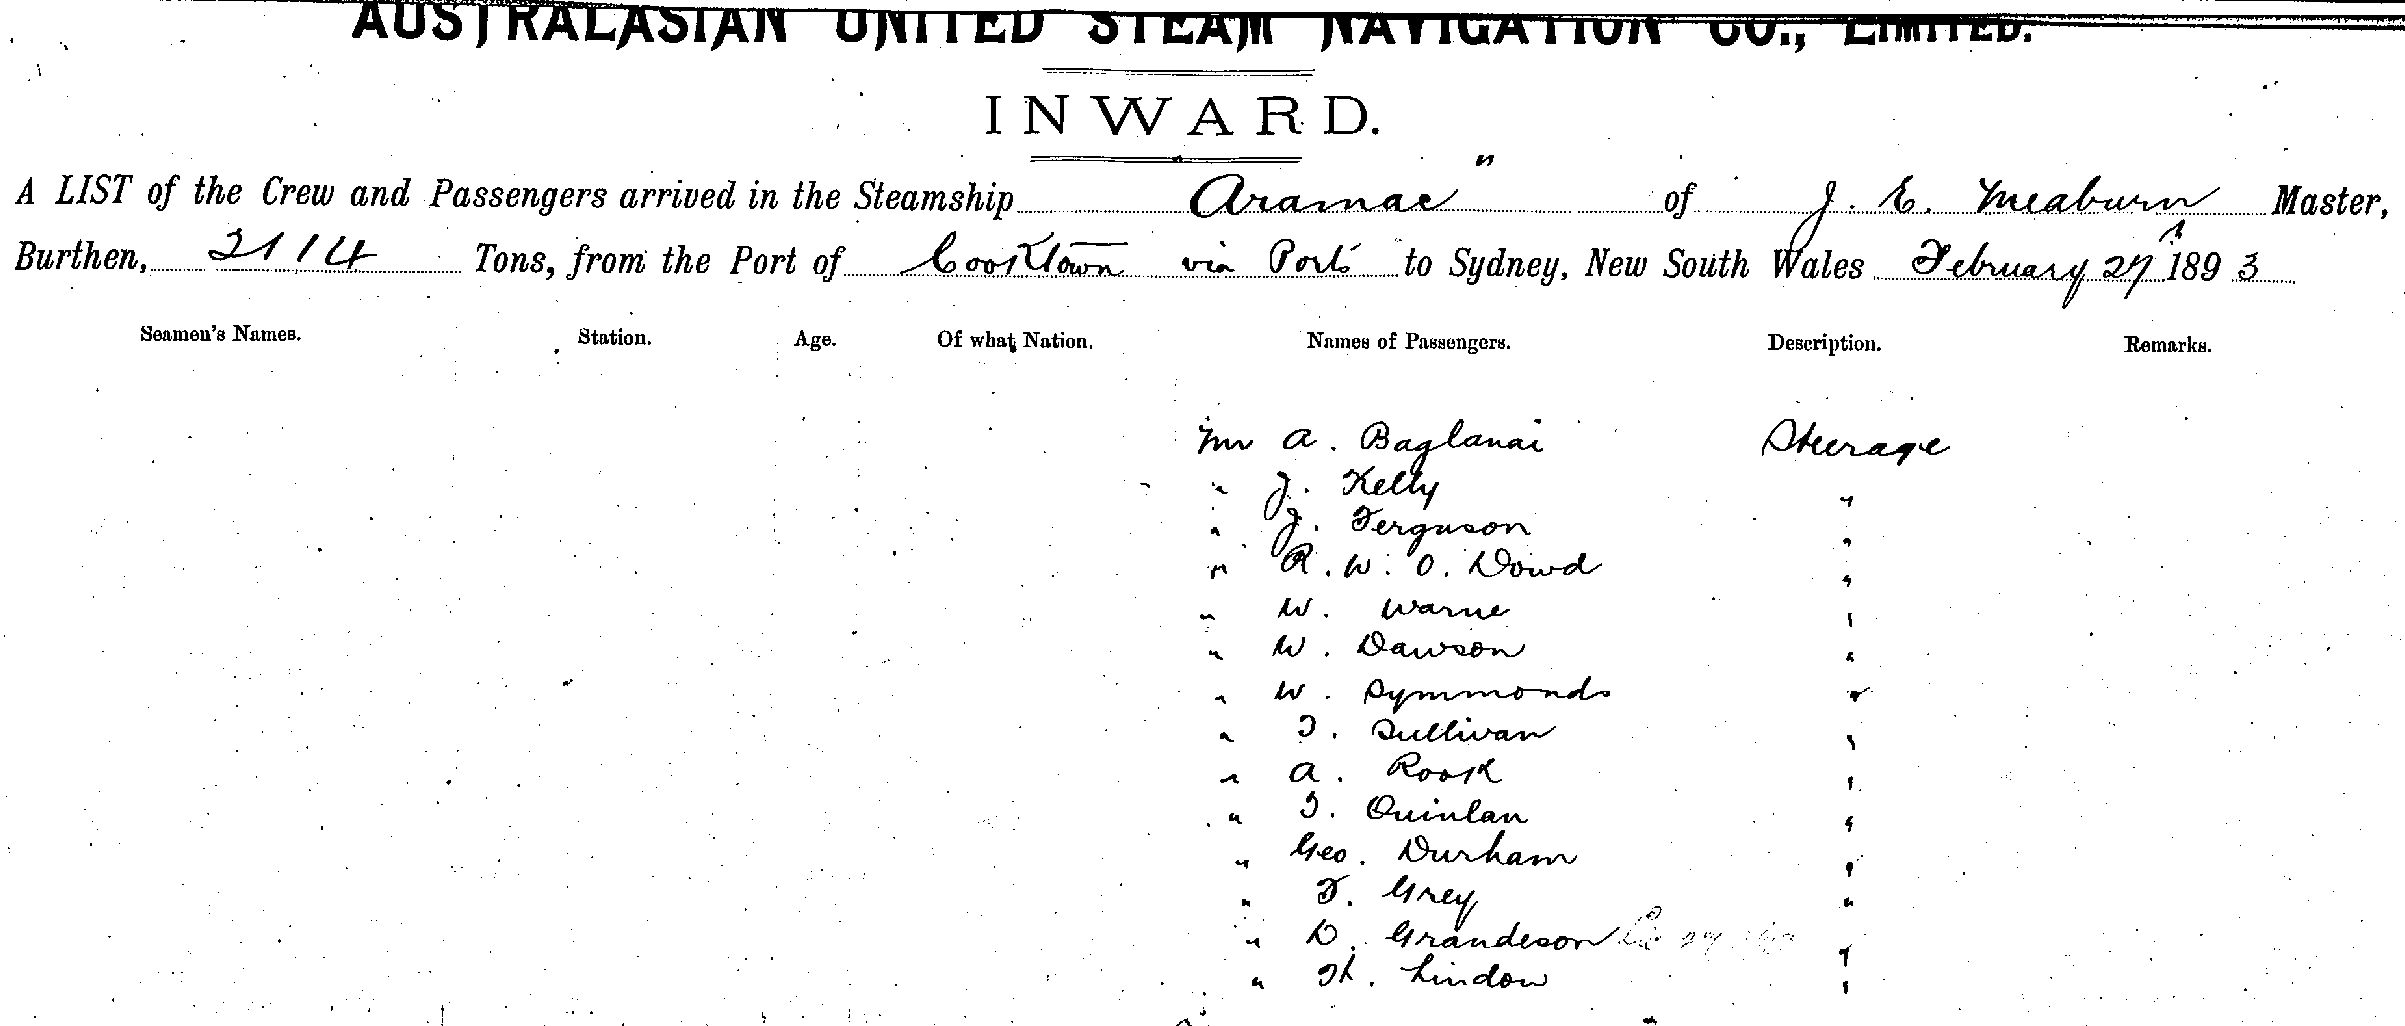 AUSTRALASIAN UNITED STEAM NAVIGATION CO., LIMITED.
INWARD.
A LIST of the Crew and Passengers arrived in the Steamship Aramac " of J. E. Meaburn Master,
Burthen, 2114 Tons, from the Port of Cooktown via Ports to Sydney, New South Wales February 27th 1893
Seamen's Names. Station. Age. Of what Nation. Names of Passengers. Description. Remarks.
Mr A. Baglanai Steerage
" J. Kelly "
" J. Ferguson "
" R. W. O. Dowd "
" W. Warne "
" W. Dawson "
" W. Symmonds "
" T. Sullivan "
" A. Rook "
" T. Quinlan "
" Geo. Durham "
" F. Grey "
" D. Grandeson "
" Th. Lindow "